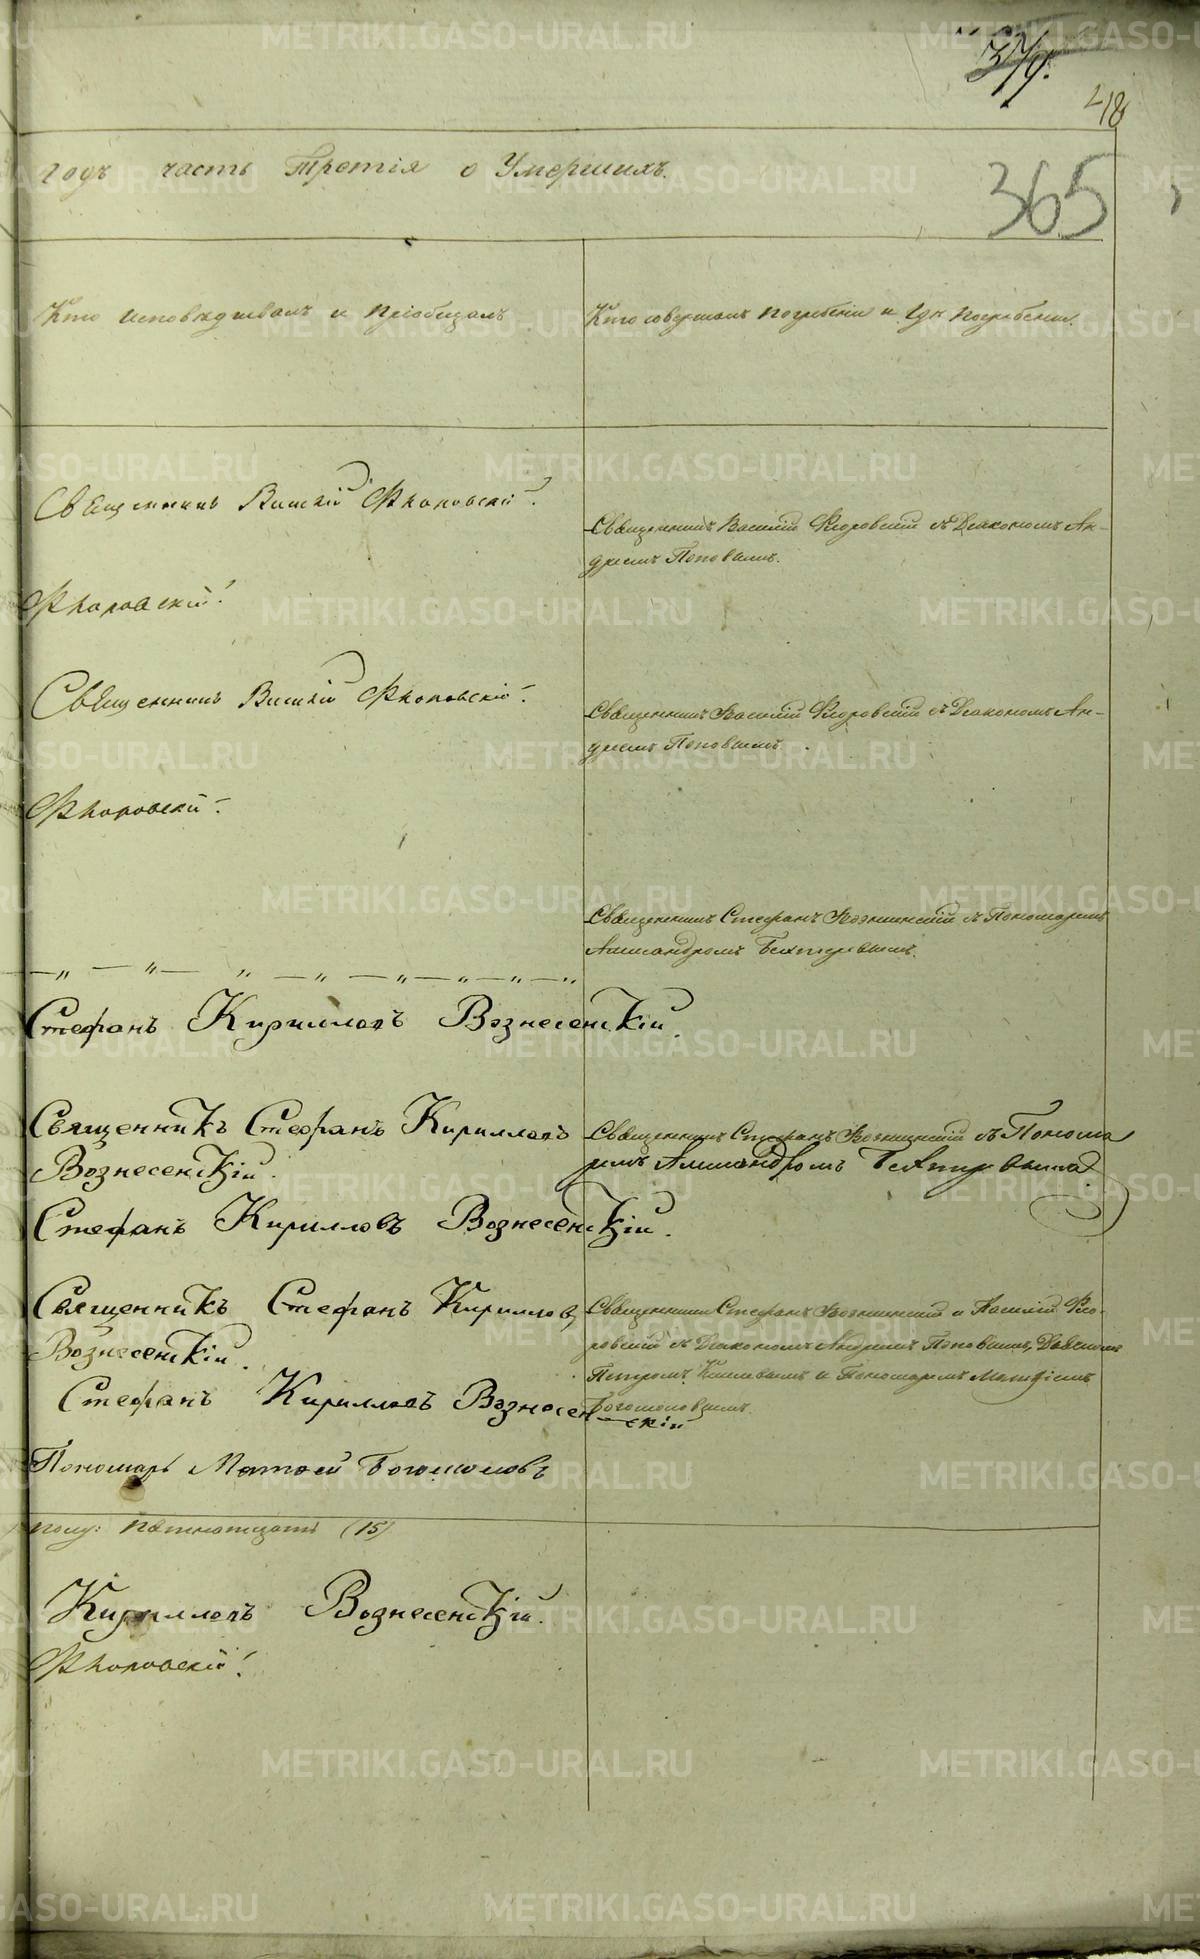 374.
418
365
годъ часть Третія о Умершихъ.
Кто исповѣдывалъ и пріобщалъ
Кто совершалъ погребеніе и гдѣ погребены.
Священникъ Василій Флоровскій.
Священникъ Василій Флоровскій съ Діакономъ Ан-
дреемъ Поповымъ.
Флоровскій.
Священникъ Василій Флоровскій.
Священникъ Василій Флоровскій съ Діакономъ Ан-
дреемъ Поповымъ.
Флоровскій.
Священникъ Стефанъ Вознесенскій съ Пономаремъ
Александромъ Бехтеревымъ.
Стефанъ Кирилловъ Вознесенскій.
Священникъ Стефанъ Кирилловъ
Вознесенскій.
Священникъ Стефанъ Вознесенскій съ Понома
ремъ Александромъ Бехтеревымъ
Стефанъ Кирилловъ Вознесенскій.
Священникъ Стефанъ Кирилловъ
Вознесенскій.
Священники Стефанъ Вознесенскій и Василій Фло-
ровскій съ Діакономъ Андреемъ Поповымъ, Дьячкомъ
Петромъ и Пономаремъ Матфіемъ
Богомоловымъ.
Стефанъ Кирилловъ Вознесен-
скій
Пономарь Матфей Богомоловъ
полу: пятнатцать (15)
Кирилловъ Вознесенскій.
Флоровскій.
METRIKI.GASO-URAL.RU